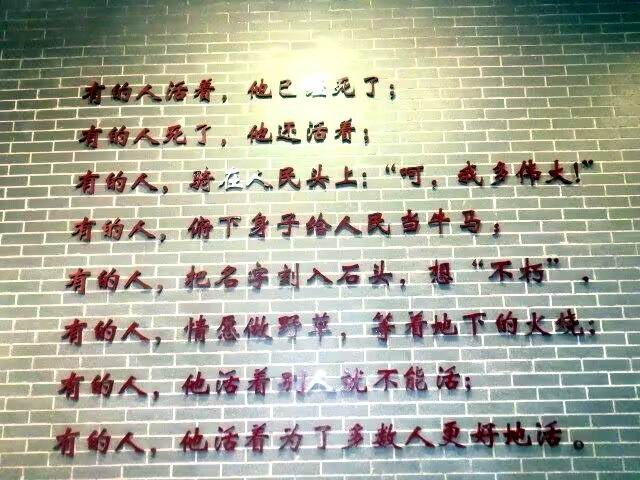 有的人活着，他已经死了；
有的人死了，他还活着；
有的人，骑在人民头上：“呵，我多伟大！”
有的人，俯下身子给人民当牛马；
有的人，把名字刻入石头，想“不朽”，
有的人，情愿做野草，等着地下的火烧；
有的人，他活着别人就不能活；
有的人，他活着为了多数人更好地活。